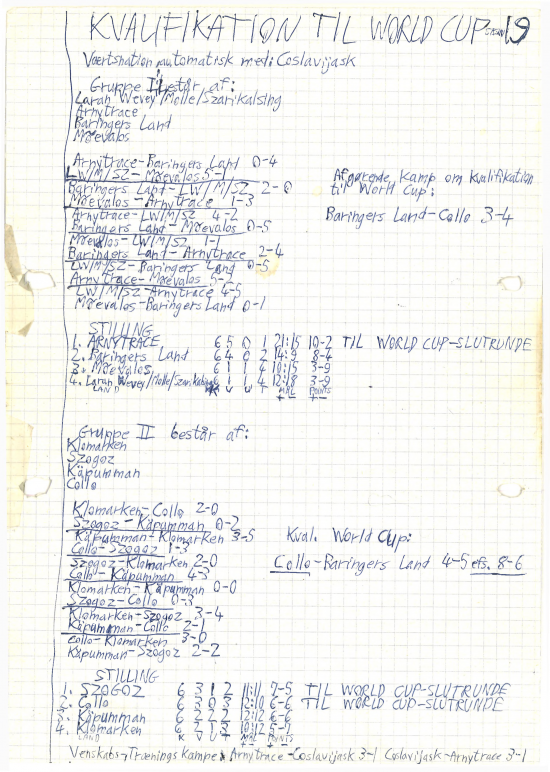 KVALIFIKATION TIL WORLD CUP 19
Værtsnation automatisk med: Coslavijask
Gruppe I består af:
Laran Wevey/Molle/Szarikalsing
Arnytrace
Baringers Land
Möevalos
Arnytrace-Baringers Land 0-4
LW/M/SZ-Möevalos 5-1
Baringers Land-LW/M/SZ 2-0
Möevalos-Arnytrace 1-3
Arnytrace-LW/M/SZ 4-2
Baringers Land-Möevalos 0-5
Möevalos-LW/M/SZ 1-1
Baringers Land-Arnytrace 2-4
LW/M/SZ-Baringers Land 0-5
Arnytrace-Möevalos 5-2
LW/M/SZ-Arnytrace 4-5
Möevalos-Baringers Land 0-1
Afgørende kamp om kvalifikation
til World Cup:
Baringers Land-Collo 3-4
STILLING
1. ARNYTRACE 6 5 0 1 21:15 10-2 TIL WORLD CUP-SLUTRUNDE
2. Baringers Land 6 4 0 2 14:9 8-4
3. Möevalos 6 1 1 4 10:15 3-9
4. Laran Wevey/Molle/Szarikalsing 6 1 1 4 12:18 3-9
LAND K V U T MÅL POINTS
+ - + -
Gruppe II består af:
Klomarken
Szogoz
Käpumman
Collo
Klomarken-Collo 2-0
Szogoz-Käpumman 0-2
Käpumman-Klomarken 3-5
Collo-Szogoz 1-3
Szogoz-Klomarken 2-0
Collo-Käpumman 4-3
Klomarken-Käpumman 0-0
Szogoz-Collo 0-3
Klomarken-Szogoz 3-4
Käpumman-Collo 2-1
Collo-Klomarken 3-0
Käpumman-Szogoz 2-2
Kval. World Cup:
Collo-Baringers Land 4-5 efs. 8-6
STILLING
1. SZOGOZ 6 3 1 2 11:11 7-5 TIL WORLD CUP-SLUTRUNDE
2. Collo 6 3 0 3 12:10 6-6 TIL WORLD CUP-SLUTRUNDE
3. Käpumman 6 2 2 2 12:12 6-6
4. Klomarken 6 2 1 3 10:12 5-7
LAND K V U T MÅL POINTS
+ - + -
Venskabs-Trænings Kampe: Arnytrace-Coslavijask 3-1 Coslavijask-Arnytrace 3-1